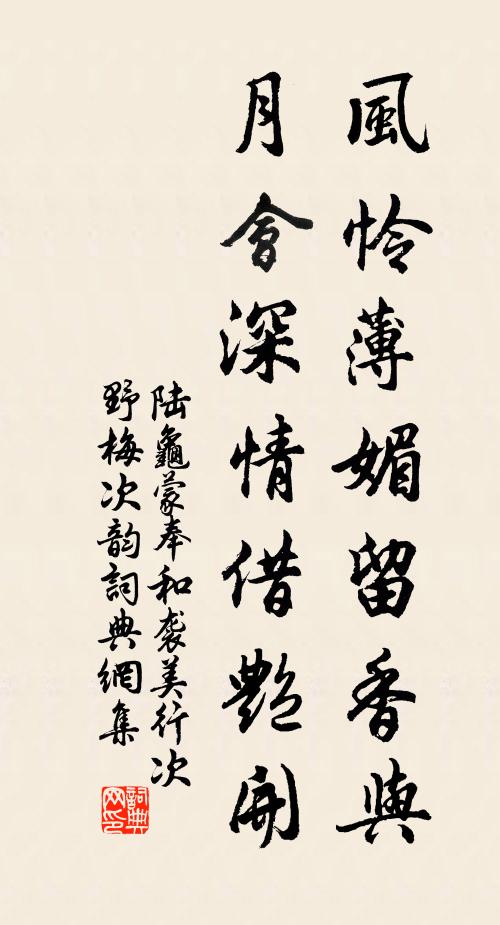 風憐薄媚留香與
月會深情借艷開
陆龜蒙奉和袭美行次
野梅次韵詞典網集
詞典
网印